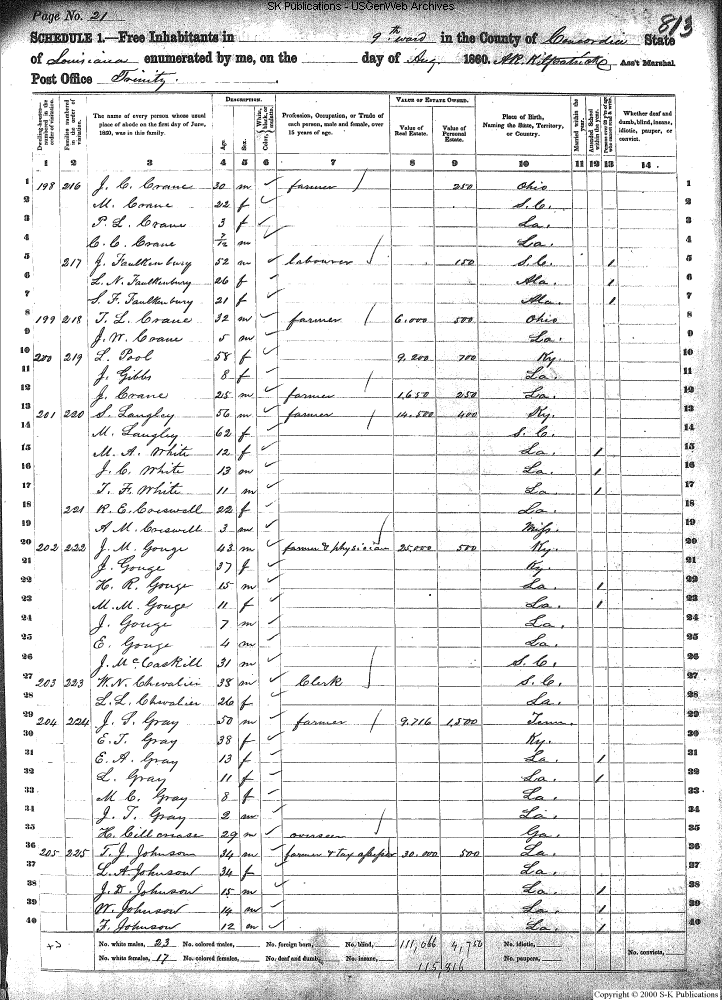 SK Publications - USGenWeb Archives
Page No. 21
813
SCHEDULE 1.—Free Inhabitants in 9th ward in the County of Concordia State
of Louisiana enumerated by me, on the day of Aug 1860. Ass't Marshal
Post Office Trinity.
Dwelling-houses—numbered in the order of visitation.
Families numbered in the order of visitation.
The name of every person whose usual place of abode on the first day of June, 1860, was in this family.
DESCRIPTION.
Age.
Sex.
Color,
Profession, Occupation, or Trade of each person, male and female, over 15 years of age.
VALUE OF ESTATE OWNED.
Value of Real Estate.
Value of Personal Estate.
Place of Birth, Naming the State, Territory, or Country.
Married within the year.
Attended School within the year.
Whether deaf and dumb, blind, insane, idiotic, pauper, or convict.
1 2 3 4 5 6 7 8 9 10 11 12 13 14
1 198 216 J. C. Crane 30 m ✓ farmer / 250 Ohio 1
2 M. Crane 22 f ✓ S.C. 2
3 P. L. Crane 3 f ✓ La. 3
4 C. C. Crane 7/12 m La. 4
5 217 J. Faulkenbury 52 m ✓ labourer / 150 S.C. 1 5
6 L. N. Faulkenbury 26 f ✓ Ala. 1 6
7 S. F. Faulkenbury 21 f ✓ Ala. 1 7
8 199 218 T. L. Crane 32 m ✓ farmer / 6,000 500 Ohio 8
9 J. W. Crane 5 m ✓ La. 9
10 200 219 L. Pool 58 f ✓ 9,200 700 Ky. 10
11 J. Gibbs 8 f ✓ La. 11
12 J. Crane 25 m ✓ farmer 1,650 250 La. 12
13 201 220 S. Langley 56 m ✓ farmer / 14,500 400 Ky. 13
14 M. Langley 62 f ✓ S.C. 14
15 M. A. White 12 f ✓ La. 1 15
16 J. C. White 13 m ✓ La. 1 16
17 T. F. White 11 m ✓ La. 1 17
18 221 R. E. Criswell 22 f ✓ La. 18
19 A. M. Criswell 3 m ✓ Miss. 19
20 202 222 J. M. Gouge 43 m ✓ farmer & physician 25,000 500 Ky. 20
21 J. Gouge 37 f ✓ Ky. 21
22 H. R. Gouge 15 m ✓ La. 1 22
23 M. M. Gouge 11 f ✓ La. 1 23
24 J. Gouge 7 m ✓ La. 24
25 E. Gouge 4 m ✓ La. 25
26 J. McCaskill 31 m ✓ S.C. 26
27 203 223 W. N. Chevalier 38 m ✓ Clerk S.C. 27
28 L. L. Chevalier 26 f ✓ La. 28
29 204 224 J. P. Gray 50 m ✓ farmer / 9,716 1,500 Tenn. 29
30 E. T. Gray 38 f ✓ Ky. 30
31 E. A. Gray 13 f ✓ La. 1 31
32 L. Gray 11 f ✓ La. 1 32
33 M. C. Gray 8 f ✓ La. 33
34 J. T. Gray 2 m ✓ La. 34
35 H. Gillcrease 29 m ✓ overseer / Ga. 35
36 205 225 T. J. Johnson 34 m ✓ farmer & tax assessor 30,000 500 La. 36
37 L. A. Johnson 34 f ✓ La. 37
38 J. D. Johnson 15 m ✓ La. 1 38
39 W. Johnson 14 m ✓ La. 1 39
40 F. Johnson 12 m ✓ La. 1 40
No. white males, 23 No. colored males, No. foreign born, No. blind, 111,066 4,750 No. idiotic,
No. white females, 17 No. colored females, No. deaf and dumb, No. insane, No. paupers, No. convicts,
115,816
Copyright © 2000 S-K Publications